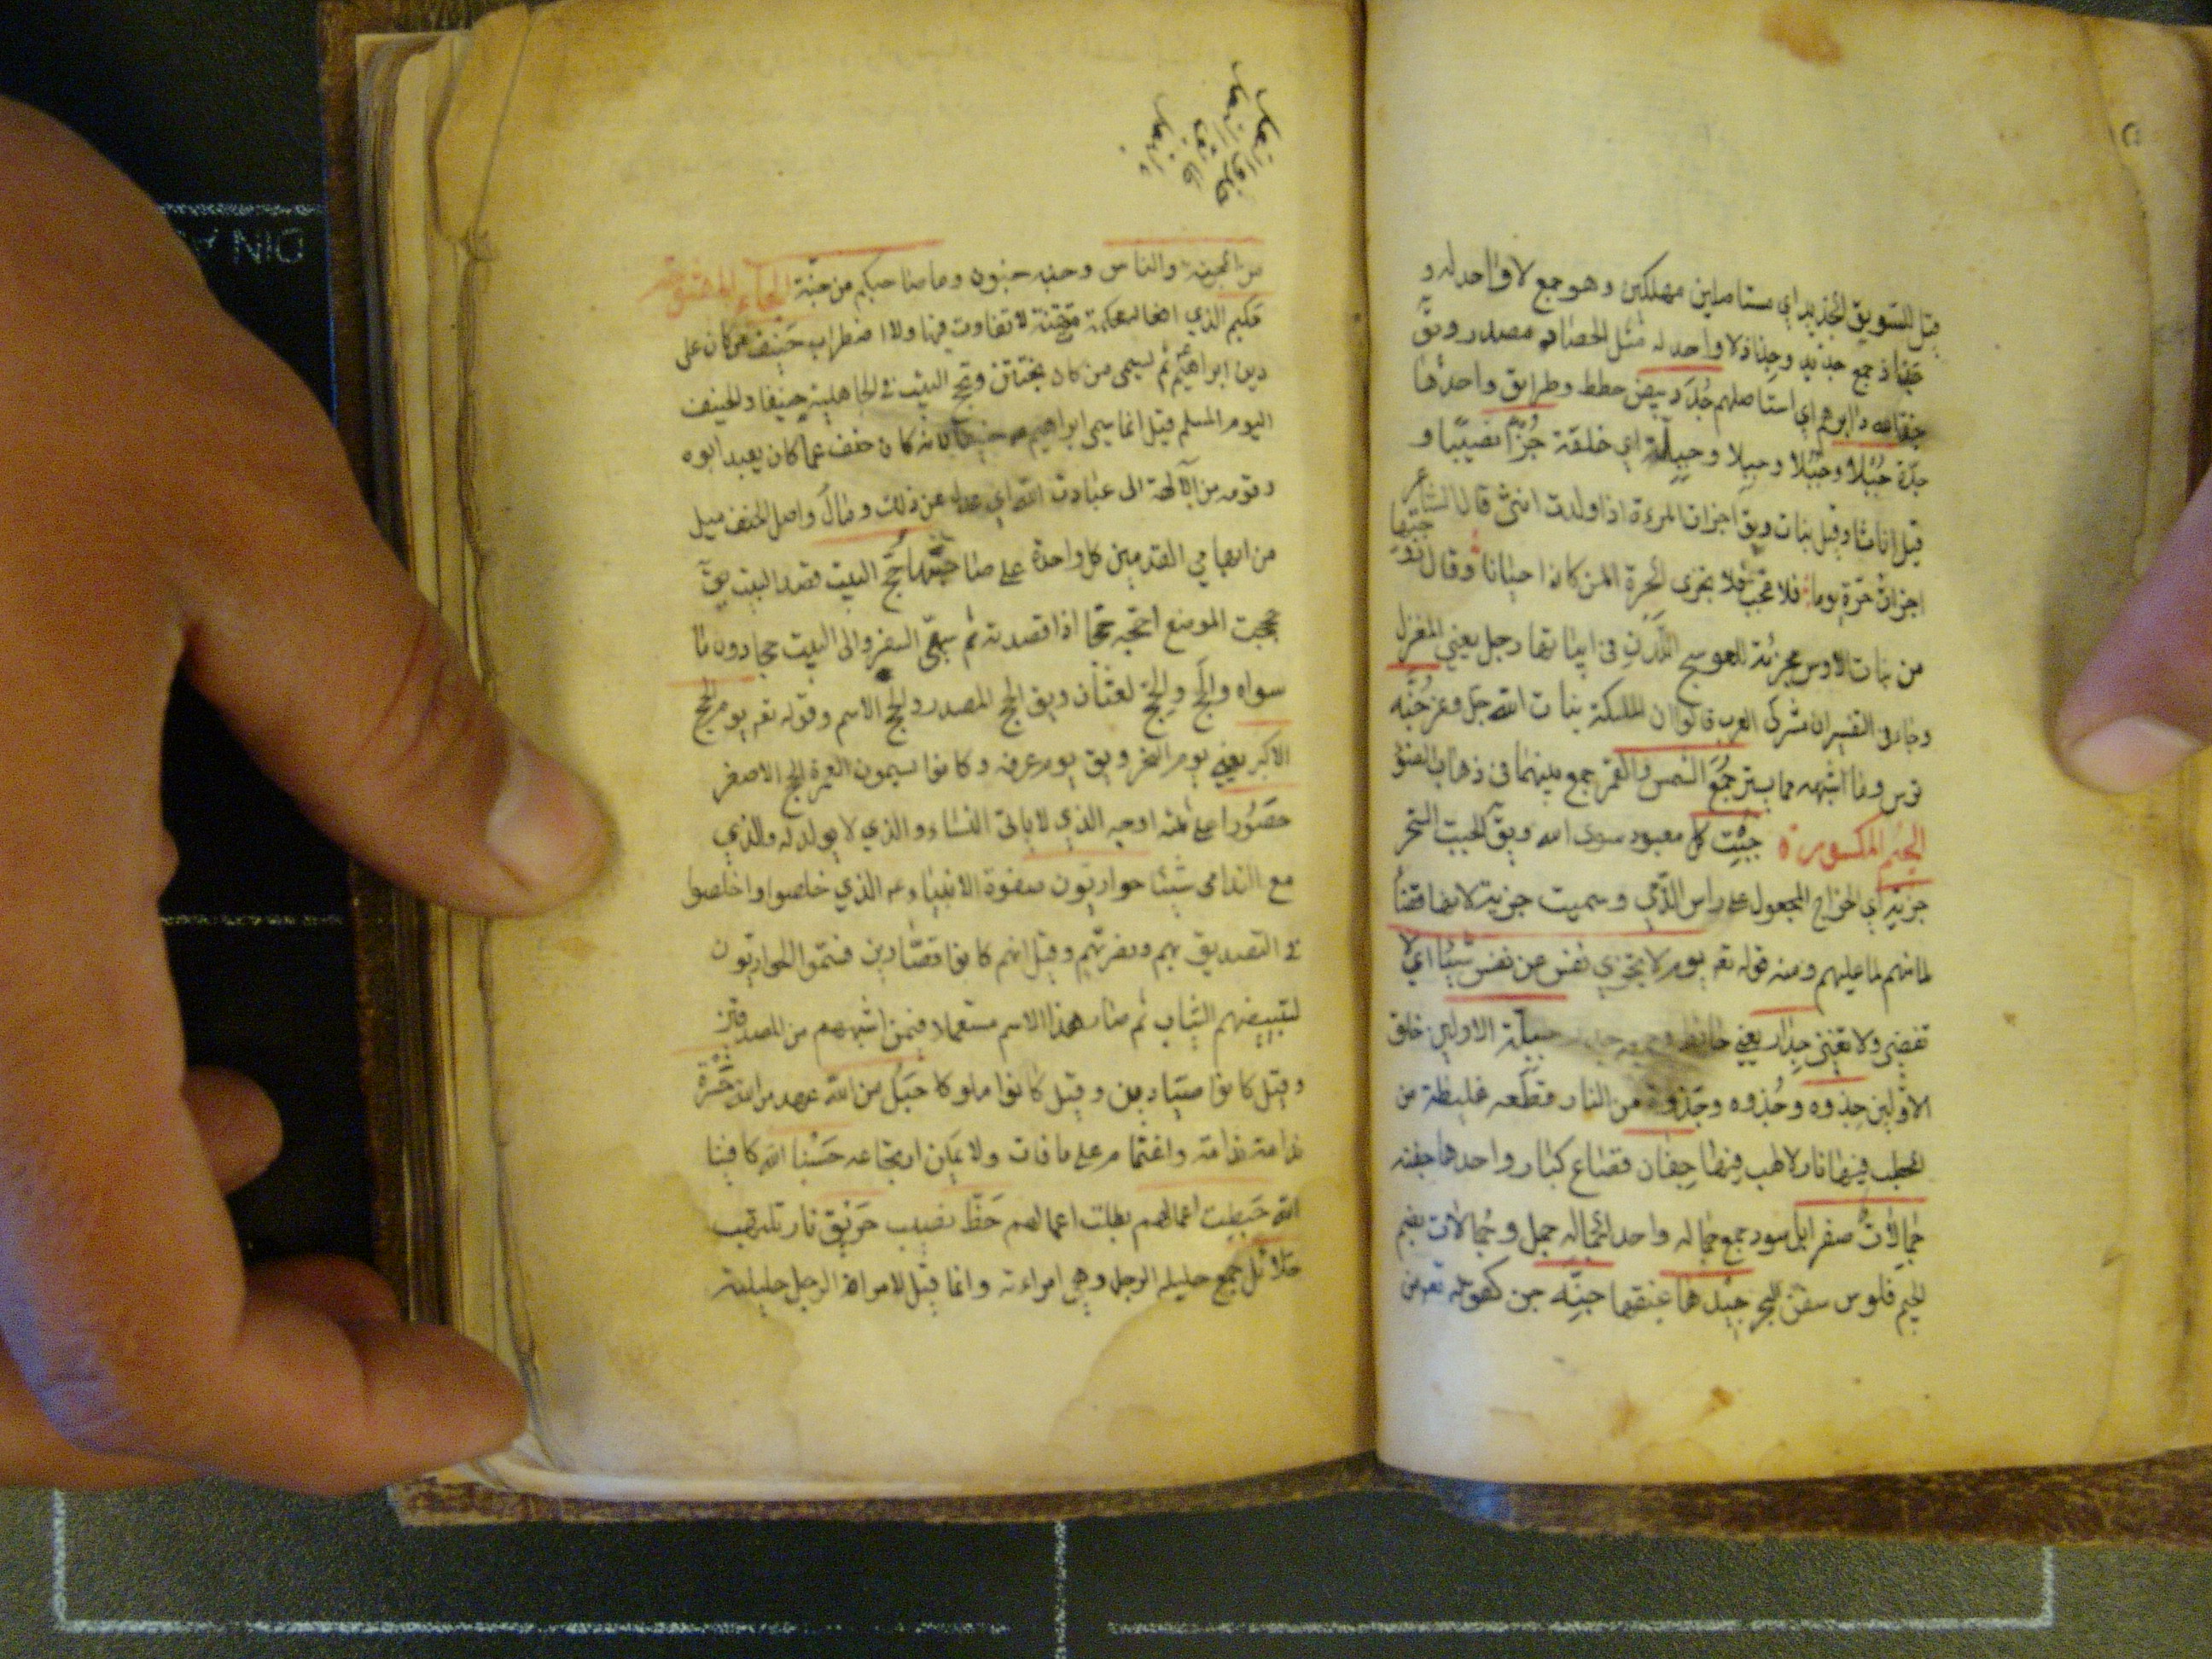 قيل للسويق الجذيذ اي مستاصلين مهلكين وهو جمع لا واحد له و
جذاذ جمع جذيذ وجذاذ لا واحد له مثل الحصاد مصدر ويق
اي استاصلهم جُدَد بيض خطط وطرايق واحدها
جدّة جُبُلا وجُبْلا وجبلا وجبِلّة اي خلقة جُزْءًا نصيبًا و
قيل اناثا وقيل بنات ويق اجزات المرءة اذا ولدت انثى قال الشاعر
اجزات حرّة يوما فلا عجب قد تجزى الحرة المذكار احيانا وقال اخر
من بنات الاوس مجزئة للعوسج اللدن في ابياتها زجل يعني المغزل
وجاء في التفسير ان مشركى العرب قالوا ان الملئكة بنات الله جل وعز جُنّة
ترس وما اشبهه مما يستر جُمِعَ الشمس والقمر جمع بينهما في ذهاب الضوء
الجيم المكسورة جِبْت كل معبود سوى الله ويق الجبت السحر
جزية اي الخراج المجعول على راس الذمّي وسميت جزية لانها قضاء
لما عليهم ومنه قوله تعه يوم لا تجزي نفس عن نفس شيئا اي لا
تقضي ولا تغنى جِدار يعني حائط جبلّة الاولين خلق
الاوّلين جِذوه وجُذوه وجَذوة من النار قطعه غليظة من
الحطب فيها نار لا لهب فيها جِفان قصاع كبار واحدها جفنه
جِمالات صفر ابل سود جمع جماله واحد الجماله جمل وجُمالات بضم
الجيم قلوس سفن البحر جيدها عنقها جنّه جن كقوله تع من
من الجنة والناس وجنه جنون وما صاحبكم من جنّة الحاء المفتوحة
حكيم الذي افعاله محكمة متقنة لا تفاوت فيها ولا اضطراب حَنيف من كان على
دين ابراهيم ثم يسمى من كان يختتن ويحج البيت في الجاهلية حنيفا والحنيف
اليوم المسلم قيل انما سمى ابراهيم حنيفا لانه كان حنف عما كان يعبد ابوه
وقومه من الآلهة الى عبادت الله اي عدل عن ذلك ومال واصل الحنف ميل
من ابهامي القدمين كل واحدة على صاحبتها حَجّ البيت قصد البيت يق
حججت الموضع احجه حجا اذا قصدته ثم سمّي السفر الى البيت حجا دون ما
سواه والحَج والحِج لغتان ويق الحج المصدر والحج الاسم وقوله تعه يوم الحج
الاكبر يعني يوم النحر ويق يوم عرفه وكانوا يسمون العمرة الحج الاصغر
حصَورا على ثلثه اوجه الذي لا ياتى النساء والذي لا يولد له والذي
مع الندامى شيئا حواريّون صفوة الانبياء عه الذي خلصوا واخلصوا
في التصديق بهم ونصرتهم وقيل انهم كانوا قصّارين فسموا الحواريّون
لتبييضهم الثياب ثم صار هذا الاسم مستعملا فيمن اشبههم من المصدقين
وقيل كانوا صيّادين وقيل كانوا ملوكا حَبل من الله عهد من الله حَسْرة
ندامة واغتمام على ما فات ولا يمكن ارتجاعه حَسْبنا الله كافينا
الله حَبِطت اعمالهم بطلت اعمالهم حَظّ نصيب حَريق نار تلتهب
حَلائل جمع حليلة الرجل وهي امراءته وانما قيل لامراة الرجل حليلته